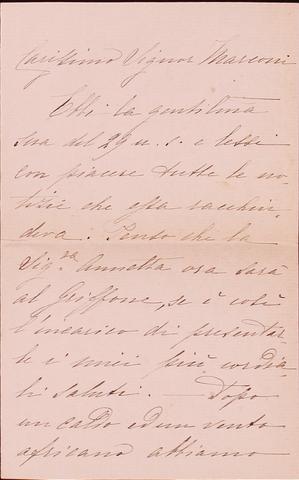 Carissimo Signor Marconi
Ebbi la gentilma
sua del 29 u. s. e lessi
con piacere tutte le no-
tizie che essa racchiu-
deva. Penso che la
Sig.ra Annetta ora sarà
al Griffone, se è così
l'incarico di presentar-
le i miei più cordia-
li saluti. — Dopo
un caldo ed un vento
africano abbiamo